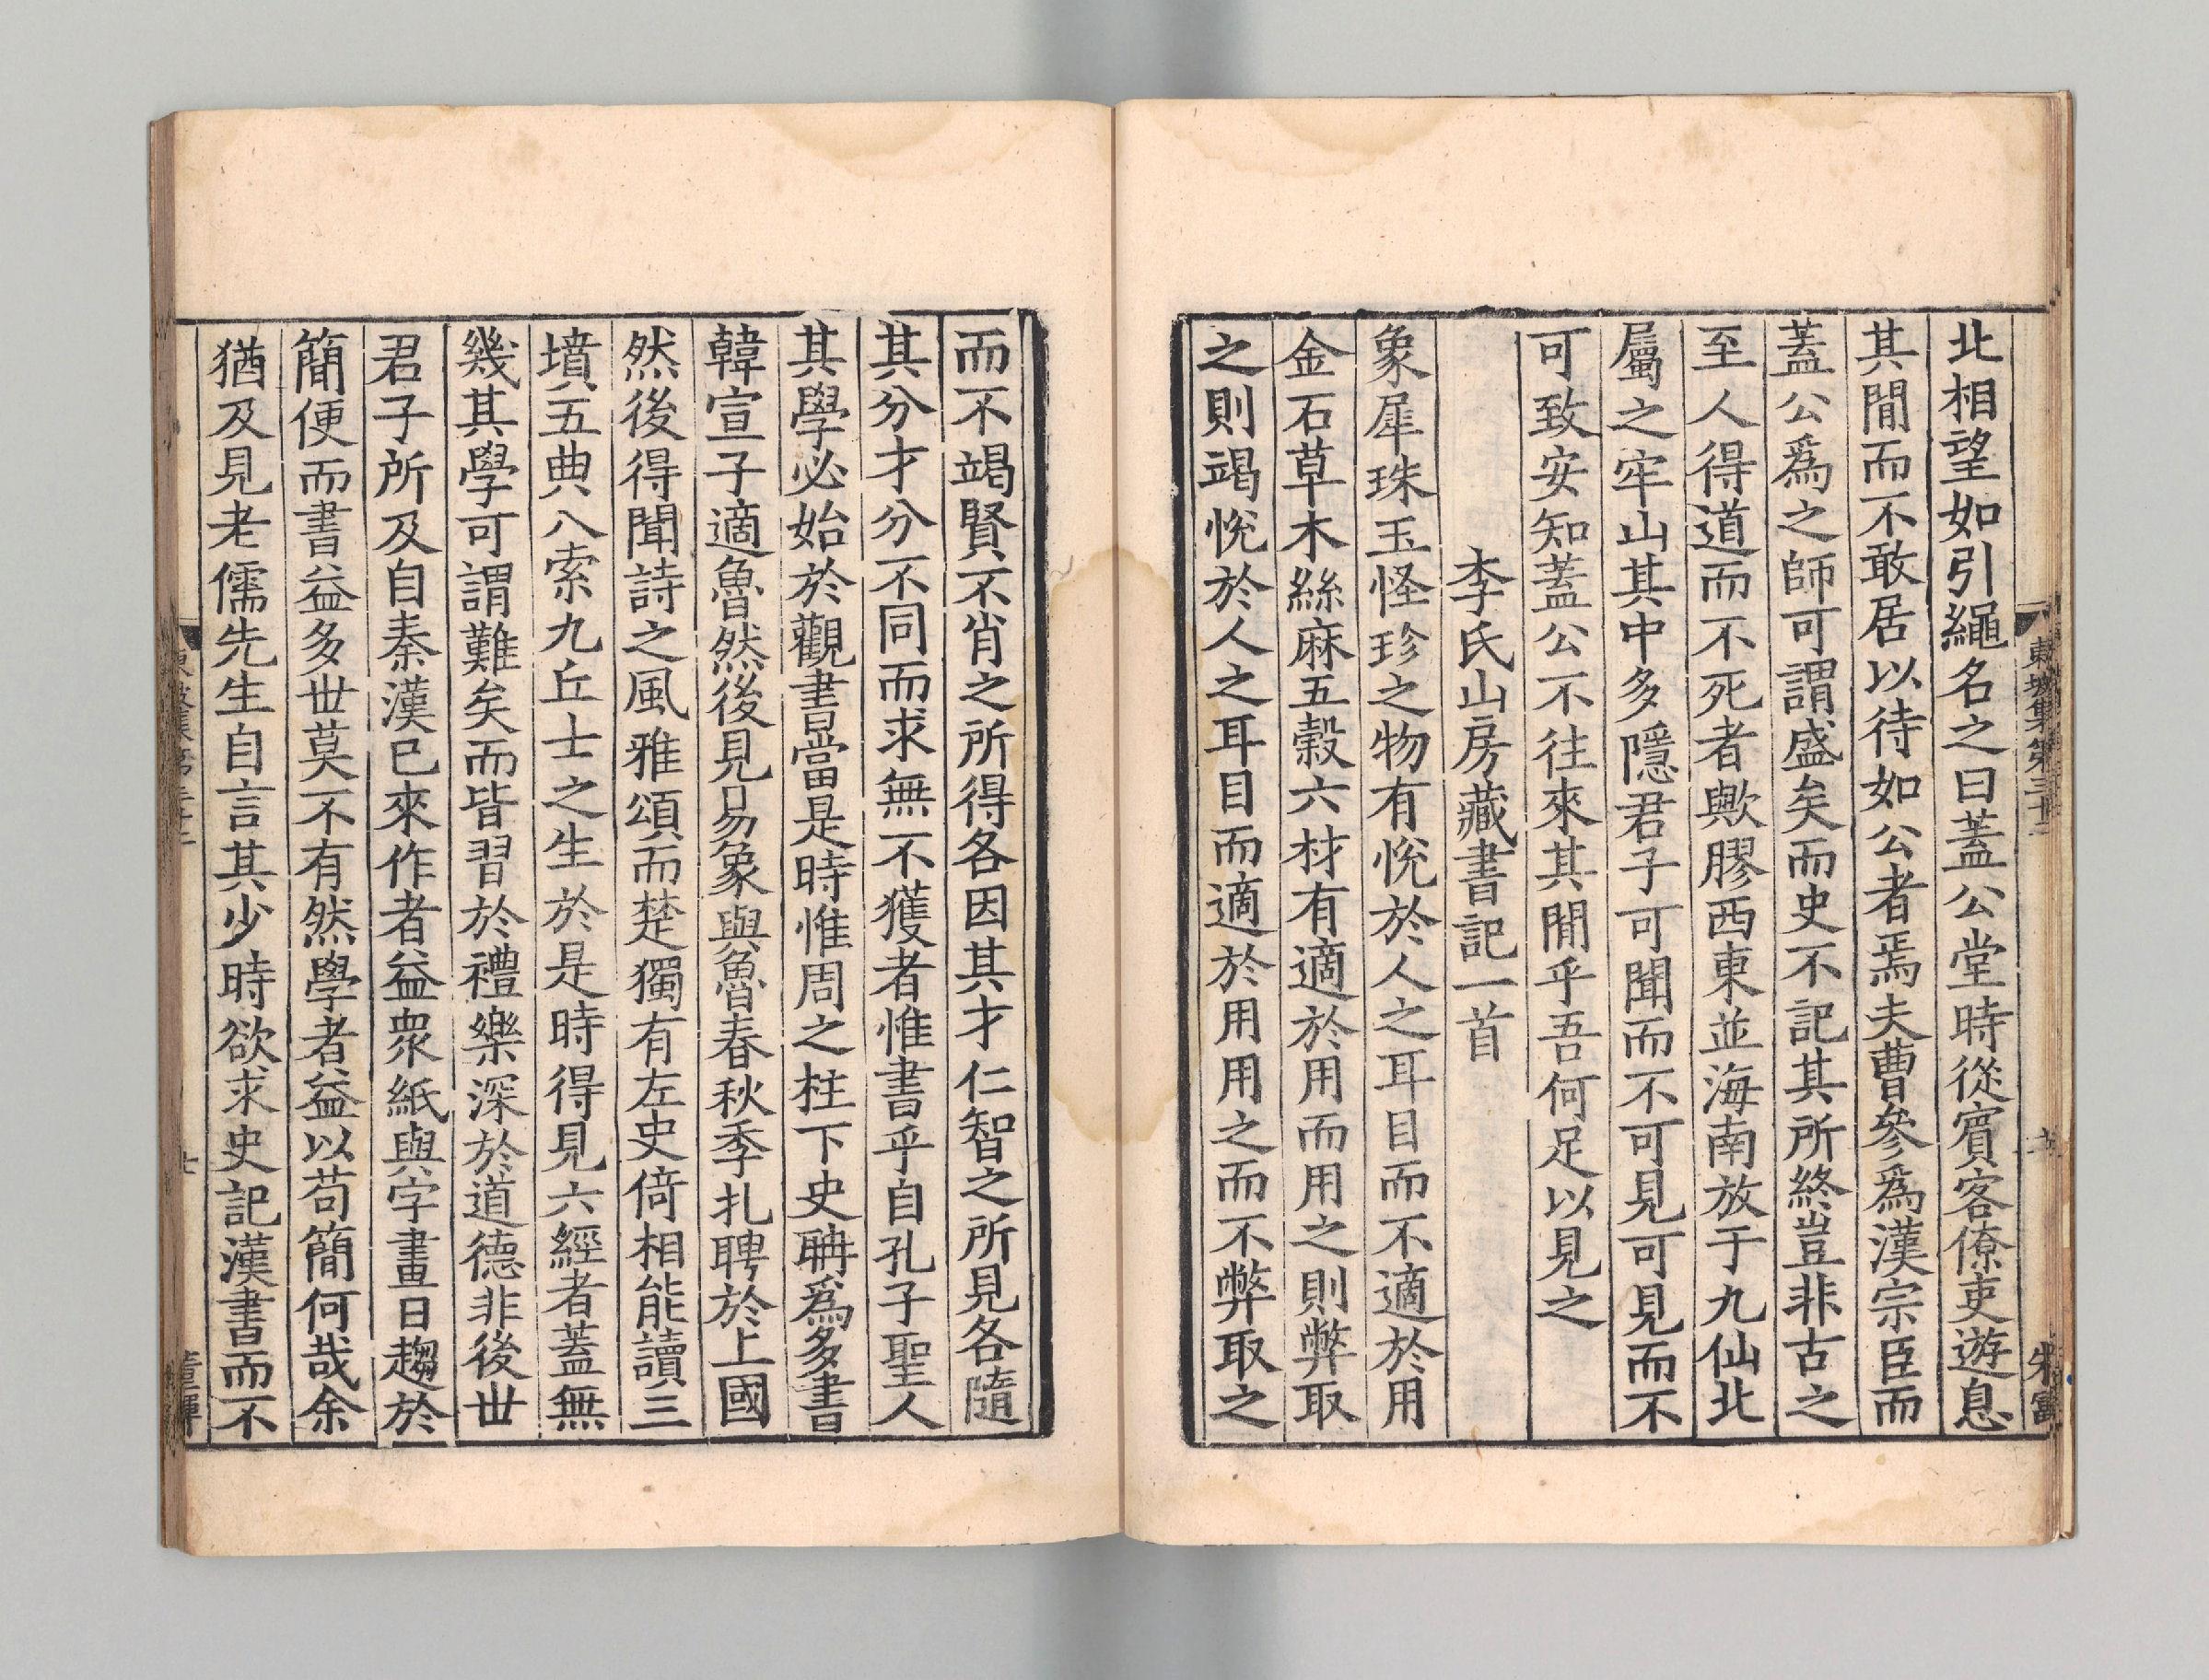 東坡集第三十二
朱富
北相望如引繩名之曰蓋公堂時從賓客僚吏遊息
其閒而不敢居以待如公者焉夫曹參爲漢宗臣而
蓋公爲之師可謂盛矣而史不記其所終豈非古之
至人得道而不死者歟膠西東並海南放于九仙北
屬之牢山其中多隱君子可聞而不可見可見而不
可致安知蓋公不往來其閒乎吾何足以見之
李氏山房藏書記一首
象犀珠玉怪珍之物有悅於人之耳目而不適於用
金石草木絲麻五穀六材有適於用而用之則弊取
之則竭悅於人之耳目而適於用用之而不弊取之
而不竭賢不肖之所得各因其才仁智之所見各隨
其分才分不同而求無不獲者惟書乎自孔子聖人
其學必始於觀書當是時惟周之柱下史聃爲多書
韓宣子適魯然後見易象與魯春秋季札聘於上國
然後得聞詩之風雅頌而楚獨有左史倚相能讀三
墳五典八索九丘士之生於是時得見六經者蓋無
幾其學可謂難矣而皆習於禮樂深於道德非後世
君子所及自秦漢已來作者益眾紙與字畫日趨於
簡便而書益多世莫不有然學者益以苟簡何哉余
猶及見老儒先生自言其少時欲求史記漢書而不
七